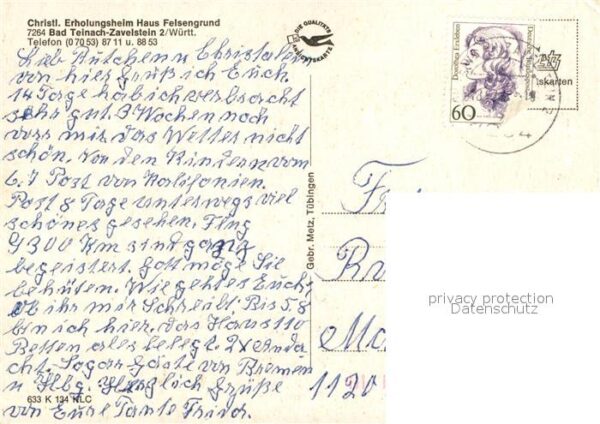 Christl. Erholungsheim Haus Felsengrund
7264 Bad Teinach-Zavelstein 2/Württ.
Telefon (0 70 53) 87 11 u. 88 53
DIE QUALITÄTS ANSICHTSKARTE
Dorothea Erxleben
Deutsche Bundespost
60
skarten
Lieb Kutchen u Christa
von hier grüß ich Euch.
14 Tage hab ich verbracht
sehr gut. 3 Wochen noch
vor mir das Wetter nicht
schön. Von den Kindern vom
6.7 Post von Kalifonien.
Post 8 Tage unterwegs viel
schönes gesehen. Flug
9300 Km sind ganz
begeistert. Gott möge Sie
behüten. Wie geht es Euch,
ob ihr mir schreibt. Bis 5.8
bin ich hier, das Haus 110
Betten alles belegt. 2x Anda
cht. Sogar Gäste von Bremen
u Hbg. Herzlich Grüße
von Eure Tante Frida.
633 K 134 NLC
Gebr. Metz, Tübingen
Fr
Ru
Mo
1120
privacy protection
Datenschutz